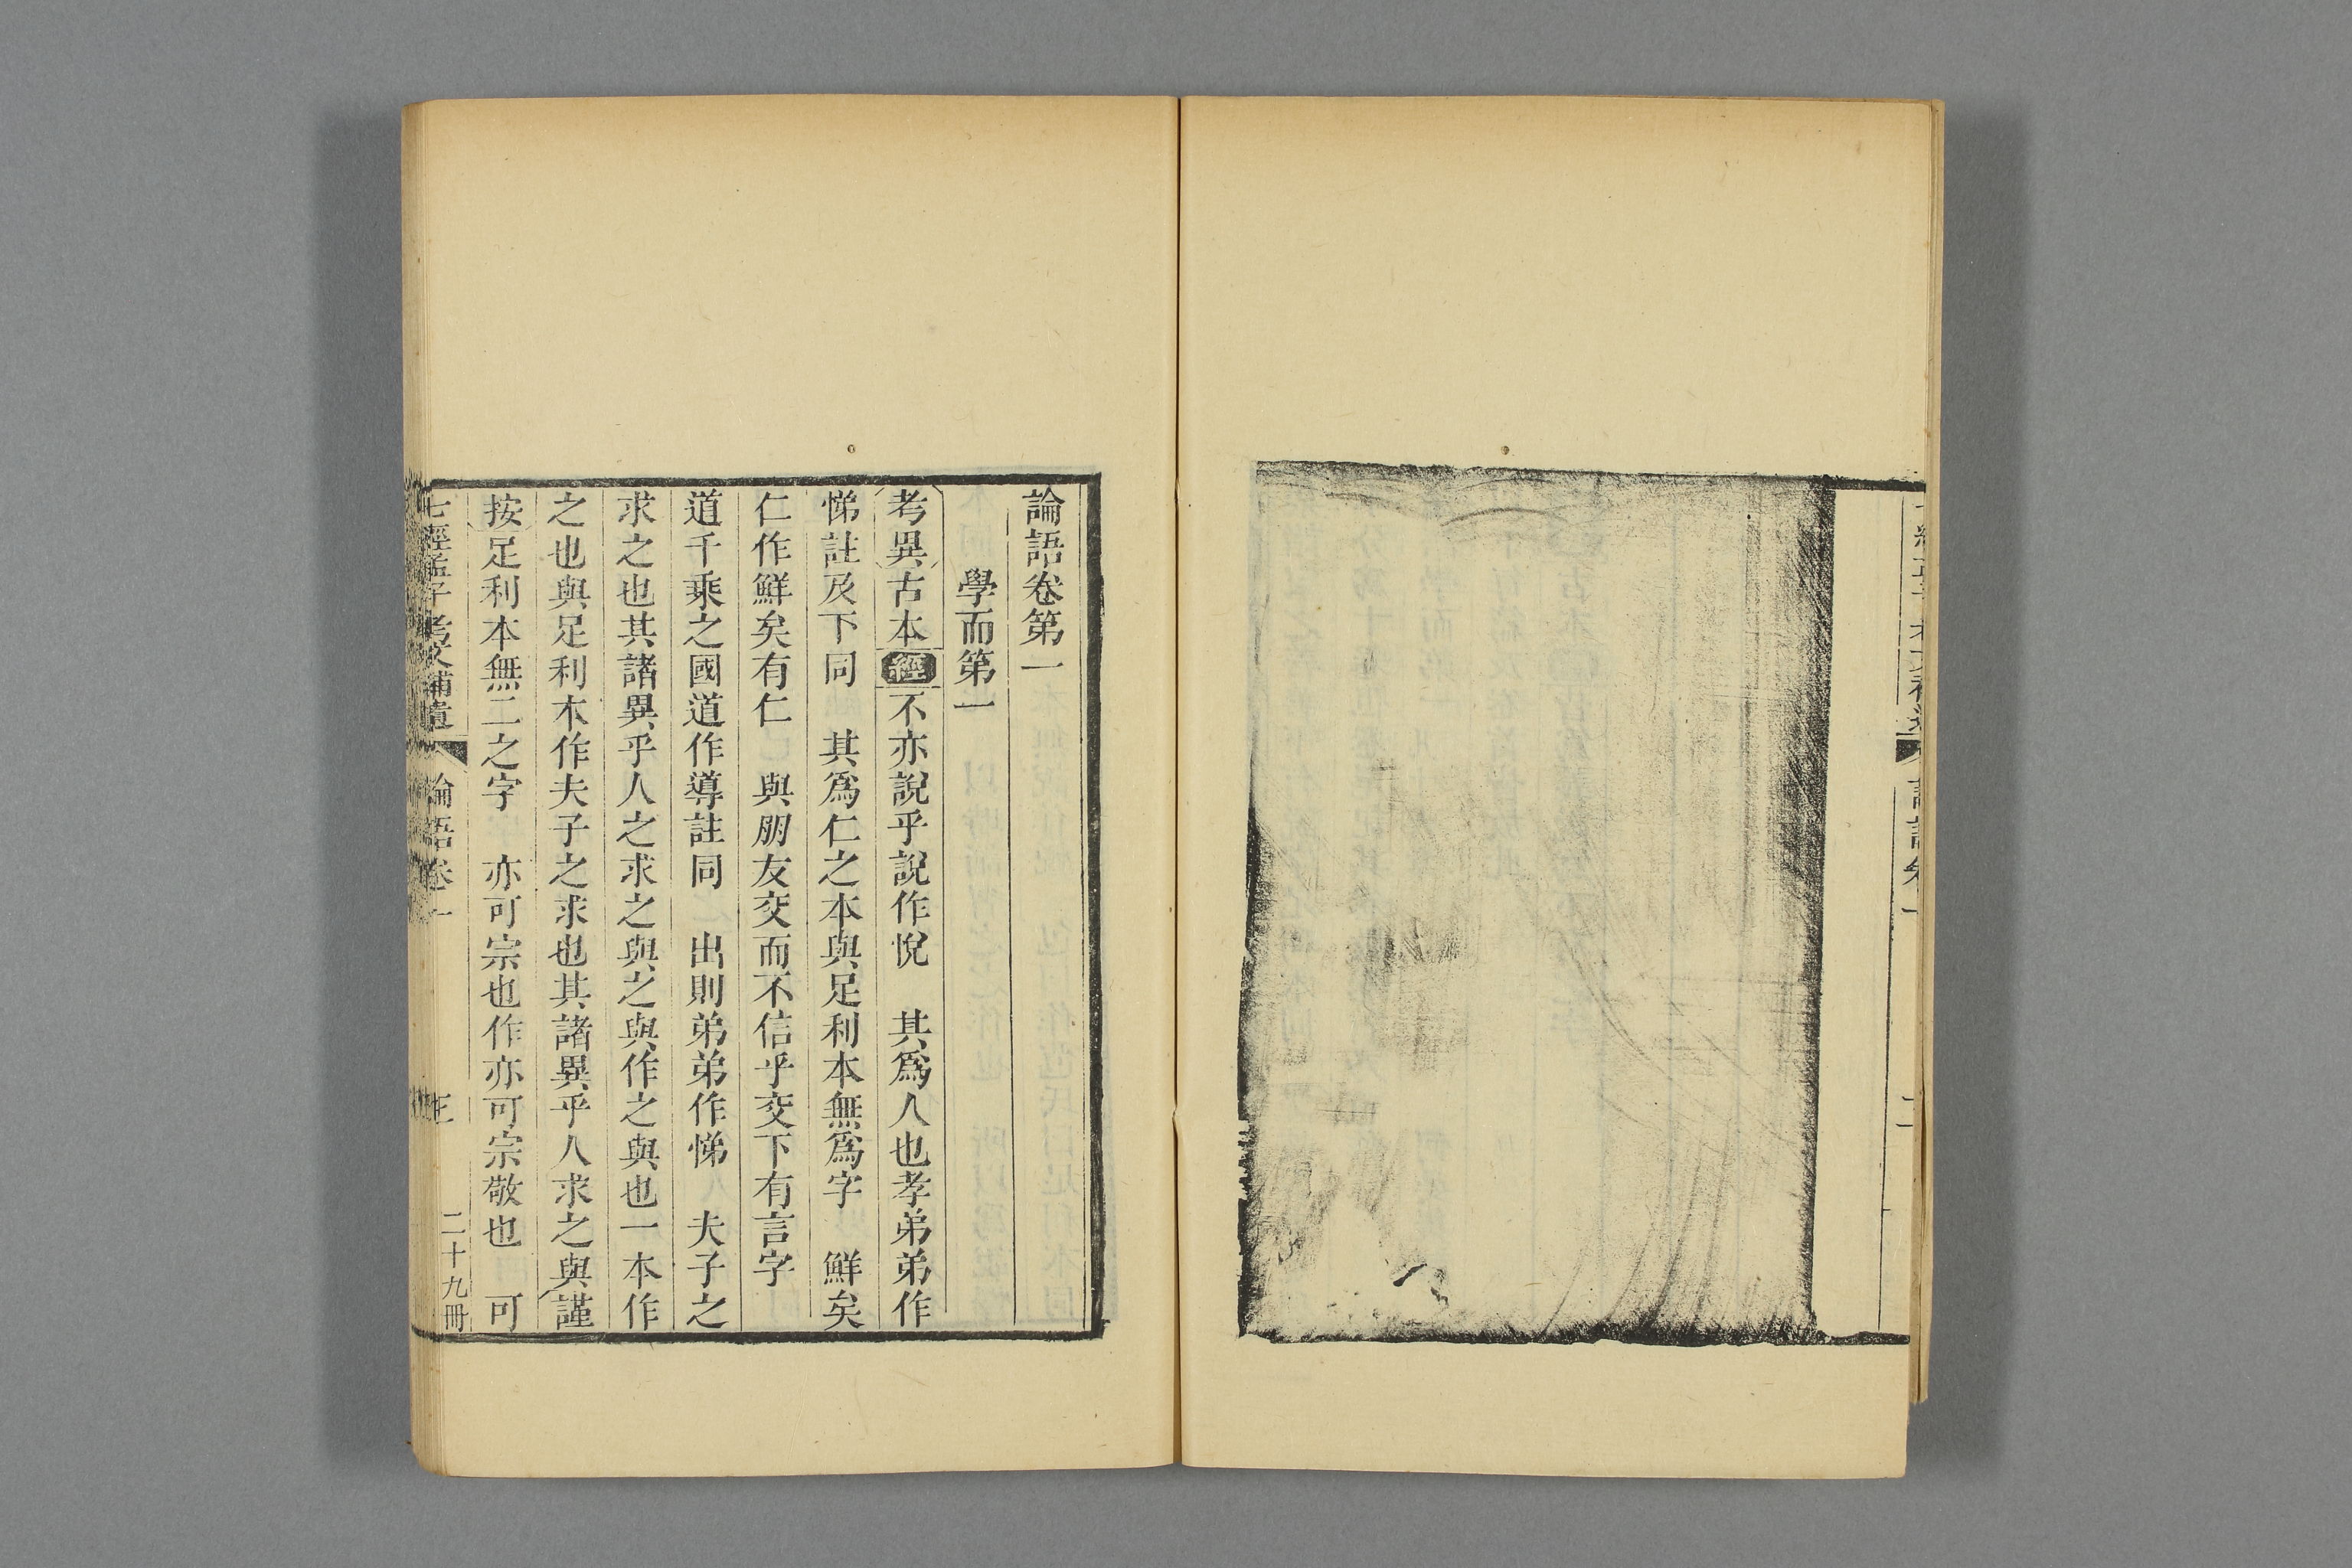 論語卷一
二
論語卷第一
學而第一
考異古本經不亦說乎說作悅　其爲人也孝弟弟作
悌註及下同　其爲仁之本與足利本無爲字　鮮矣
仁作鮮矣有仁　與朋友交而不信乎交下有言字
道千乘之國道作導註同　出則弟弟作悌　夫子之
求之也其諸異乎人之求之與之與作之與也一本作
之也與足利本作夫子之求也其諸異乎人求之與謹
按足利本無二之字　亦可宗也作亦可宗敬也　可
七經孟子考文補遺　論語卷一　二十九冊